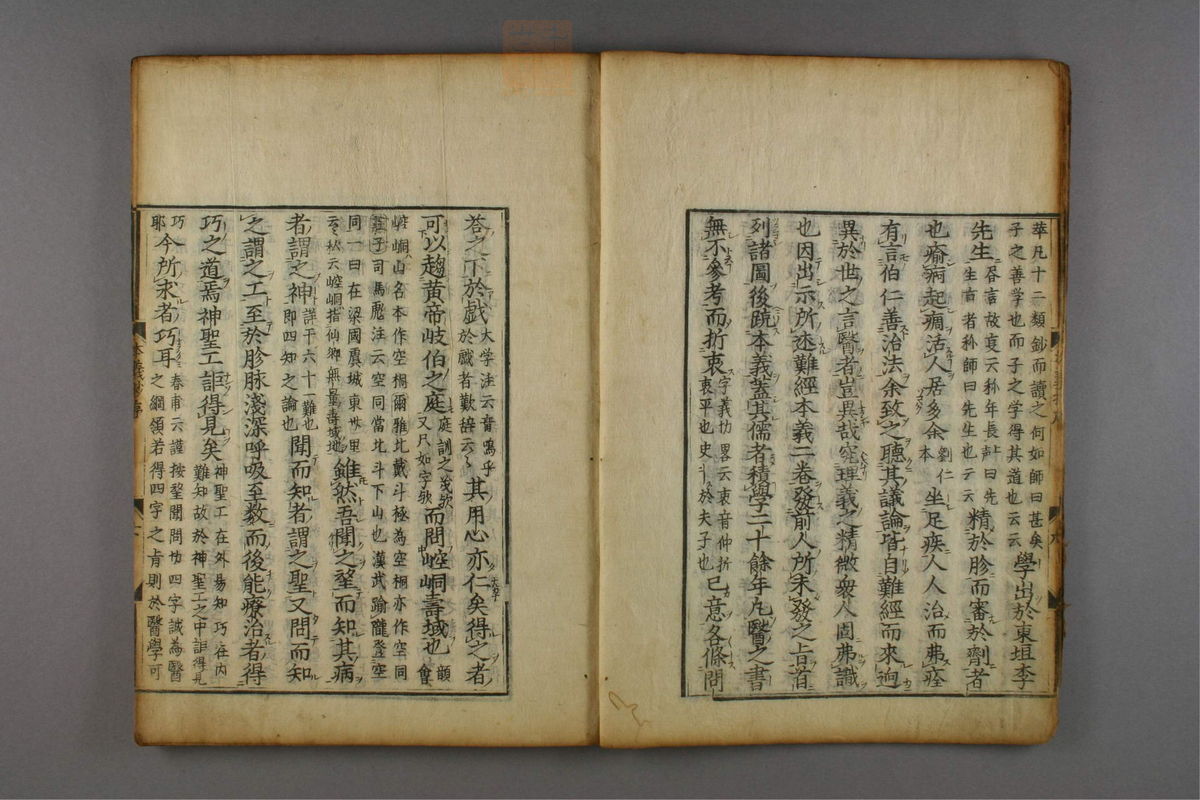 萃凡十二類鈔而讀之何如師曰甚矣
子之善学也而子之字得其道也云云
學出於東垣李
先生
呂言故衰云称年長曰先
生言者称師曰先生也云云
精於胗而審於劑者
也瘉痾起痼活人居多余
劉仁
本
坐足疾人人治而弗痊
有言伯仁善治法余致之聽其議論皆自難經而來逈
異於世之言醫者豈異哉究理義之精微衆人固弗識
也因出示所述難經本義二卷發前人所未發之旨首
列諸圖後疏本義蓋其儒者積學二十餘年凡醫之書
無不參考而折衷
字義切畧云衷音仲折
衷平也史斗於夫子也
己意各條問
荅之下於戲
大学注云音嗚乎
於戲者歎辞云云
其用心亦仁矣得之者
可以趨黄帝岐伯之庭
庭訓之浅欤
又尺如字欤
而問崆峒壽域也
韻
會
崆峒山名本作空桐爾雅北戴斗極為空桐亦作空同
莊子司馬彪注云空同當北斗下山也漢武踰隴登空
同一曰在梁國虞城東卅里
云云然云崆峒指仙郷無量壽域也
雖然吾聞之望而知其病
者謂之神
詳平六十一難也
即四知之論也
聞而知者謂之聖又問而知
之謂之工至於胗脉淺深呼吸至數而後能療治者得
巧之道焉神聖工詎得見矣
神聖工在外易知巧在内
難知故於神聖工之中詎得見
巧今所求者巧耳
春甫云謹按望聞問切四字誠為醫
之綱領若得四字之肯則於醫學可